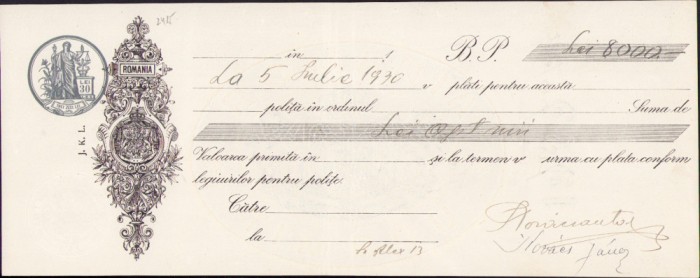 2415
ROMANIA
LEI
30
J. K. L.
în ! B. P. Lei 8000
La 5 Iulie 1930 v plăti pentru această
poliță în ordinul Suma de
Lei opt mii
Valoarea primită în și la termen v urma cu plata conform
legiuirilor pentru polițe.
Către
la
Kovács János